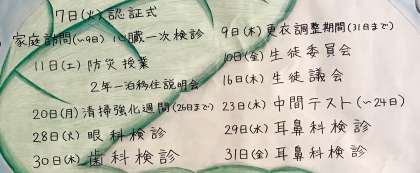 7日(火)認証式
家庭訪問(~9日) 心臓一次検診
9日(木)更衣調整期間(31日まで)
10日(金)生徒委員会
11日(土)防災授業
2年一泊移住説明会
16日(木)生徒議会
20日(月)清掃強化週間(26日まで)
23日(木)中間テスト(~24日)
28日(火)眼科検診
29日(水)耳鼻科検診
30日(木)歯科検診
31日(金)耳鼻科検診